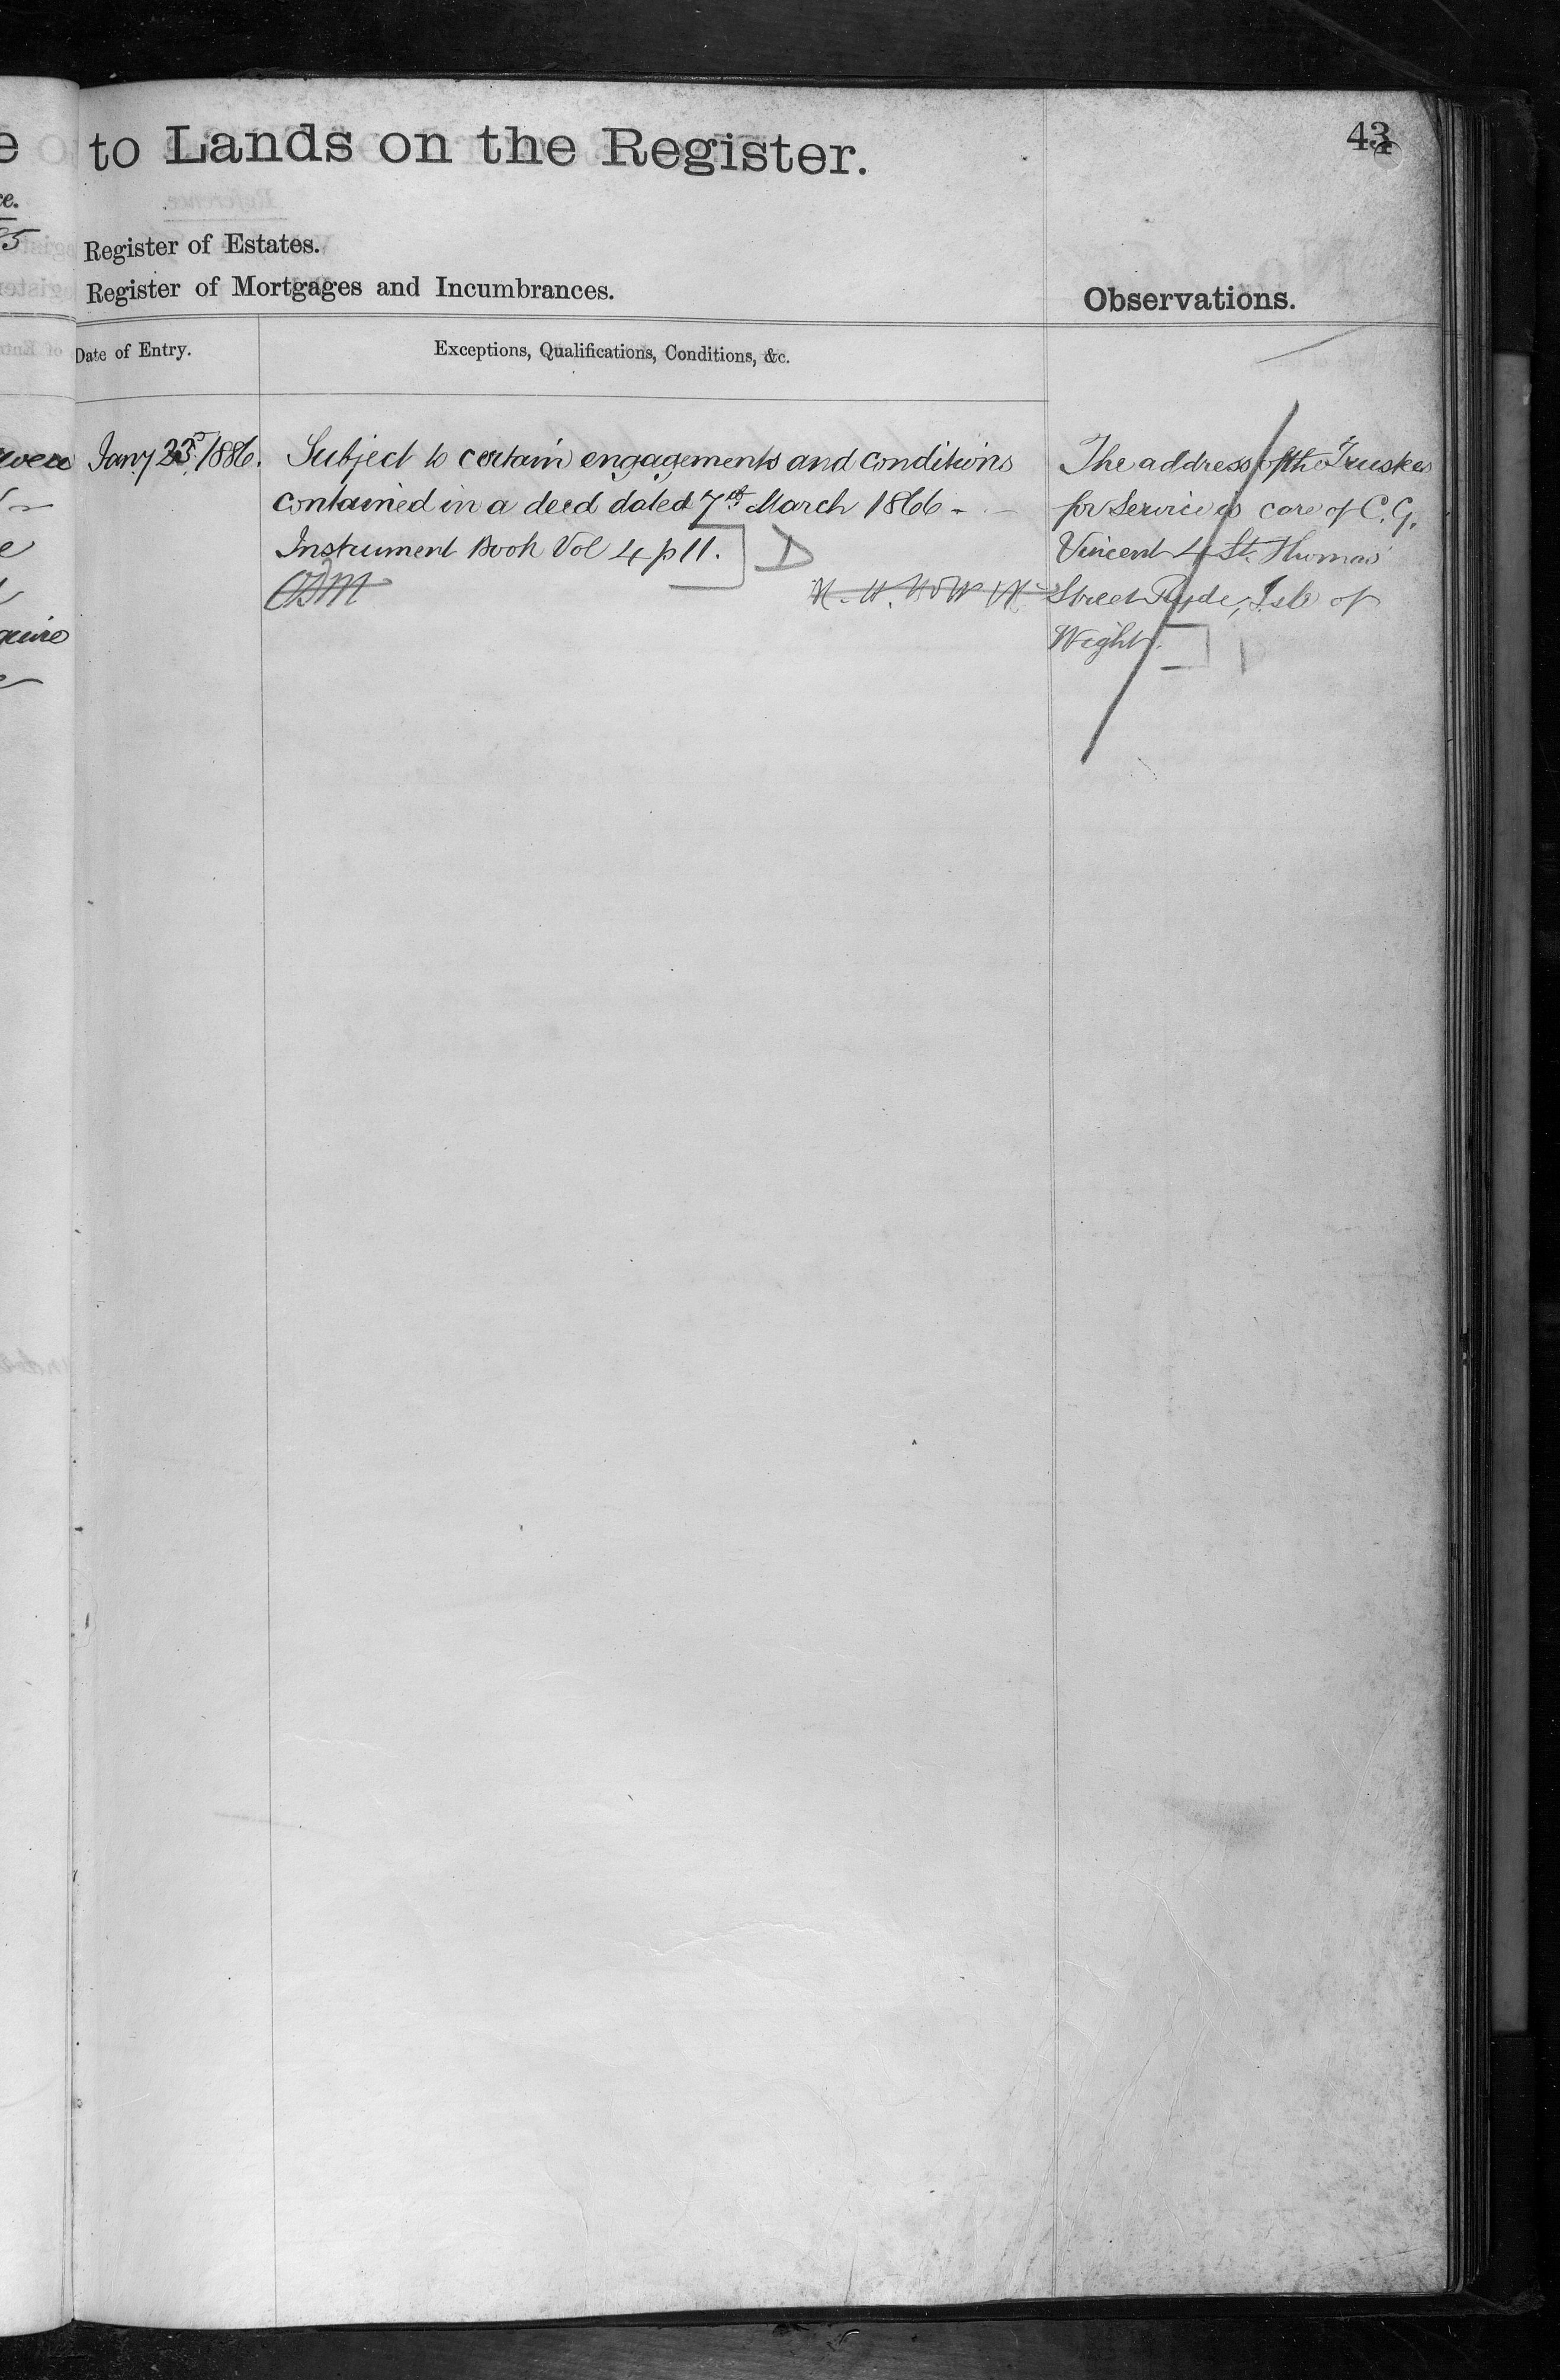 e to Lands on the Register.
43
ce.
85
Register of Estates.
Register of Mortgages and Incumbrances.
Observations.
Date of Entry.
Exceptions, Qualifications, Conditions, &c.
Jany 23rd, 1886.
Subject to certain engagements and conditions
contained in a deed dated 7th March 1866 -
Instrument Book Vol 4 p 11. D
The address of the Trustees
for Service is care of C. G.
Vincent 4 St. Thomas'
Street Ryde, Isle of
Wight.